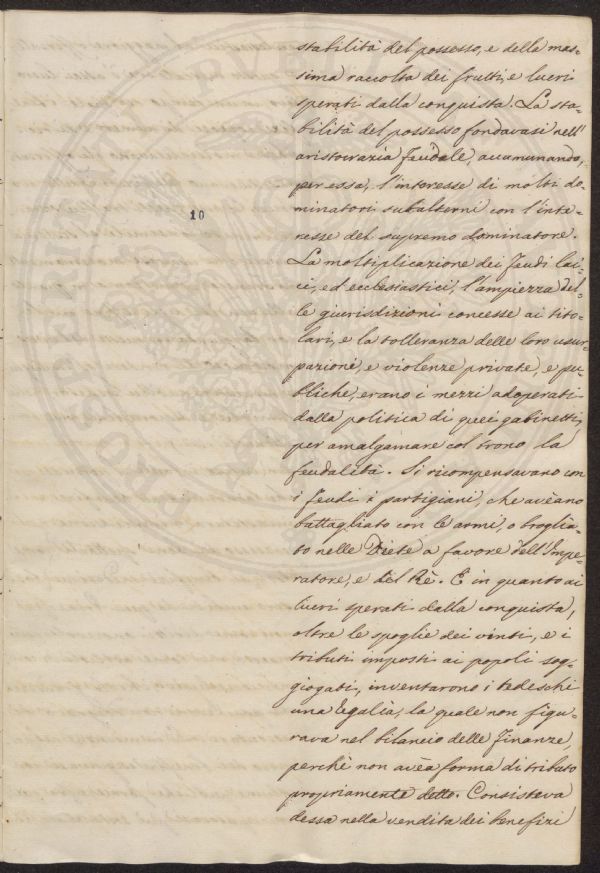 stabilità del possesso, e della mas-
sima raccolta dei frutti, e lucri
sperati dalla conquista. La sta-
bilità del possesso fondavasi nell'
aristocrazia feudale, accumunando,
per essa, l'interesse di molti do-
minatori subalterni con l'inte-
resse del supremo dominatore.
La moltiplicazione dei feudi lai-
ci, ed ecclesiastici, l'ampiezza del-
le giurisdizioni concesse ai tito-
lari, e la tolleranza delle loro usur-
pazioni, e violenze private, e pu-
bliche, erano i mezzi adoperati
dalla politica di quei gabinetti,
per amalgamare col trono la
feudalità. Si ricompensavano con
i feudi i partigiani, che avèano
battagliato con le armi, o broglia-
to nelle Diete a favore dell'Impe-
ratore, e del Rè. E in quanto ai
lucri sperati dalla conquista,
oltre le spoglie dei vinti, e i
tributi imposti ai popoli sog-
giogati, inventarono i tedeschi
una regalìa, la quale non figu-
rava nel bilancio delle finanze,
perchè non avèa forma di tributo
propriamente detto. Consisteva
dessa nella vendita dei benefizi
10